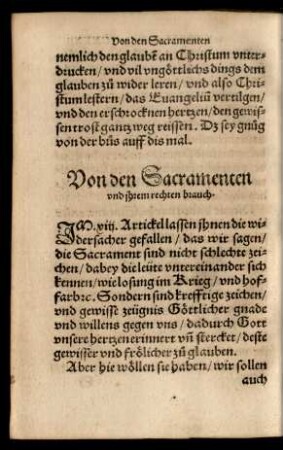 Von den Sacramenten
nemlich den glaubē an Christum vnter-
drucken / vnd vil vngöttlichs dings dem
glauben zů wider leren / vnd also Chri-
stum lestern / das Euangeliū vertilgen /
vnd den erschrocknen hertzen / den gewis-
sen trost gantz weg reissen. Dz sey gnůg
von der bůs auff dis mal.
Von den Sacramenten
vnd jhrem rechten brauch.
IM. xiij. Artickel lassen jhnen die wi-
dersacher gefallen / das wir sagen /
die Sacrament sind nicht schlechte zei-
chen / dabey die leüte vntereinander sich
kennen / wie losung im Krieg / vnd hof-
farb ꝛc. Sondern sind krefftige zeichen /
vnd gewisse zeügnis Göttlicher gnade
vnd willens gegen vns / dadurch Gott
vnsere hertzen erinnert vn̄ stercket / deste
gewisser vnd frölicher zů glauben.
Aber hie wöllen sie haben / wir sollen
auch